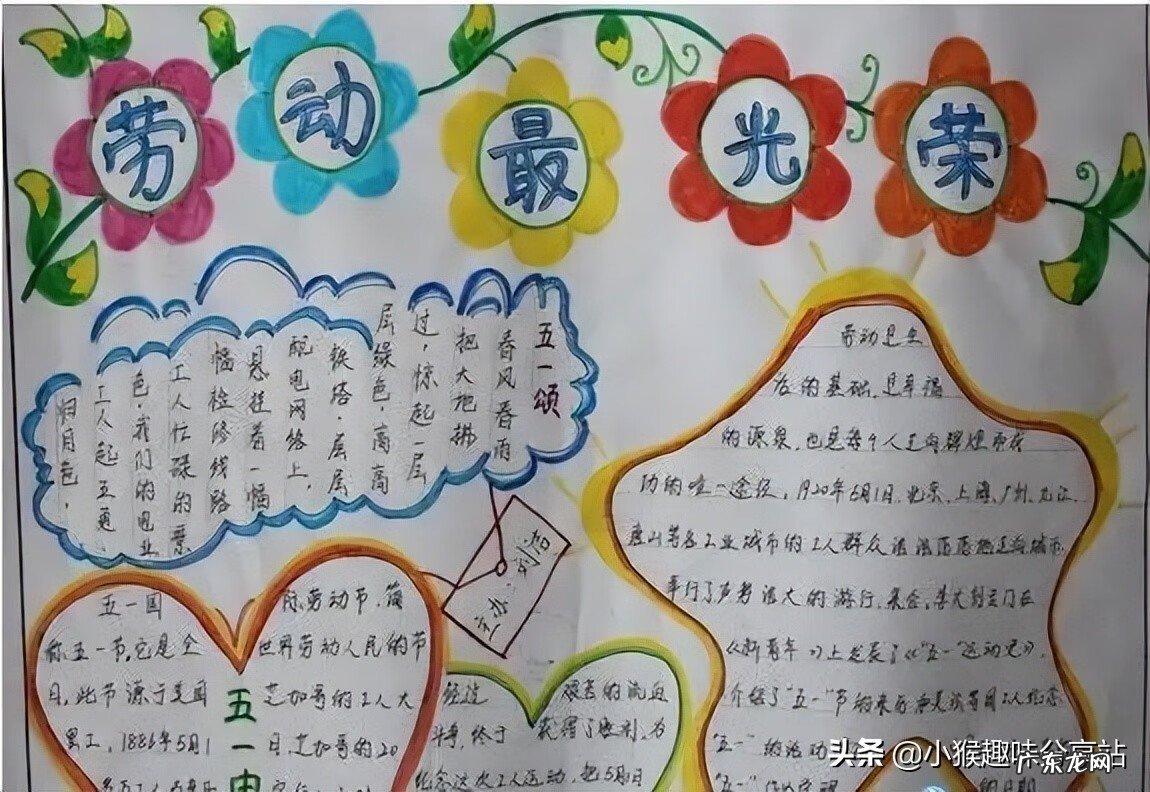 劳动最光荣
五一颂
春风春雨
把大地拂
过,惊起一层
层绿色,高高
铁塔,层层
配电网络上,
悬挂着一幅
幅检修线路
工人忙碌的景
色,我们的电业
工人起五更,
五一国际劳动节,简
称五一节,它是全世界劳动人民的节
日,此节源于美国芝加哥的工人大
罢工,1886年5月1日,芝加哥的20
五一由
经过艰苦的流血
斗争,终于获得了胜利,为
纪念这次工人运动,把5月日
劳动是生
活的基础,是幸福
的源泉,也是每个人走向辉煌和成
功的唯一途径,1920年5月1日,北京,上海,广州,九江
唐山等各工业城市的工人群众浩浩荡荡地走向城市,
举行了声势浩大的游行,集会,
《新青年》上发表了《“五一”运动史》,
介绍了“五一”节的来
“五一”的活动
头条 @小猴趣味分享站
广东龙网